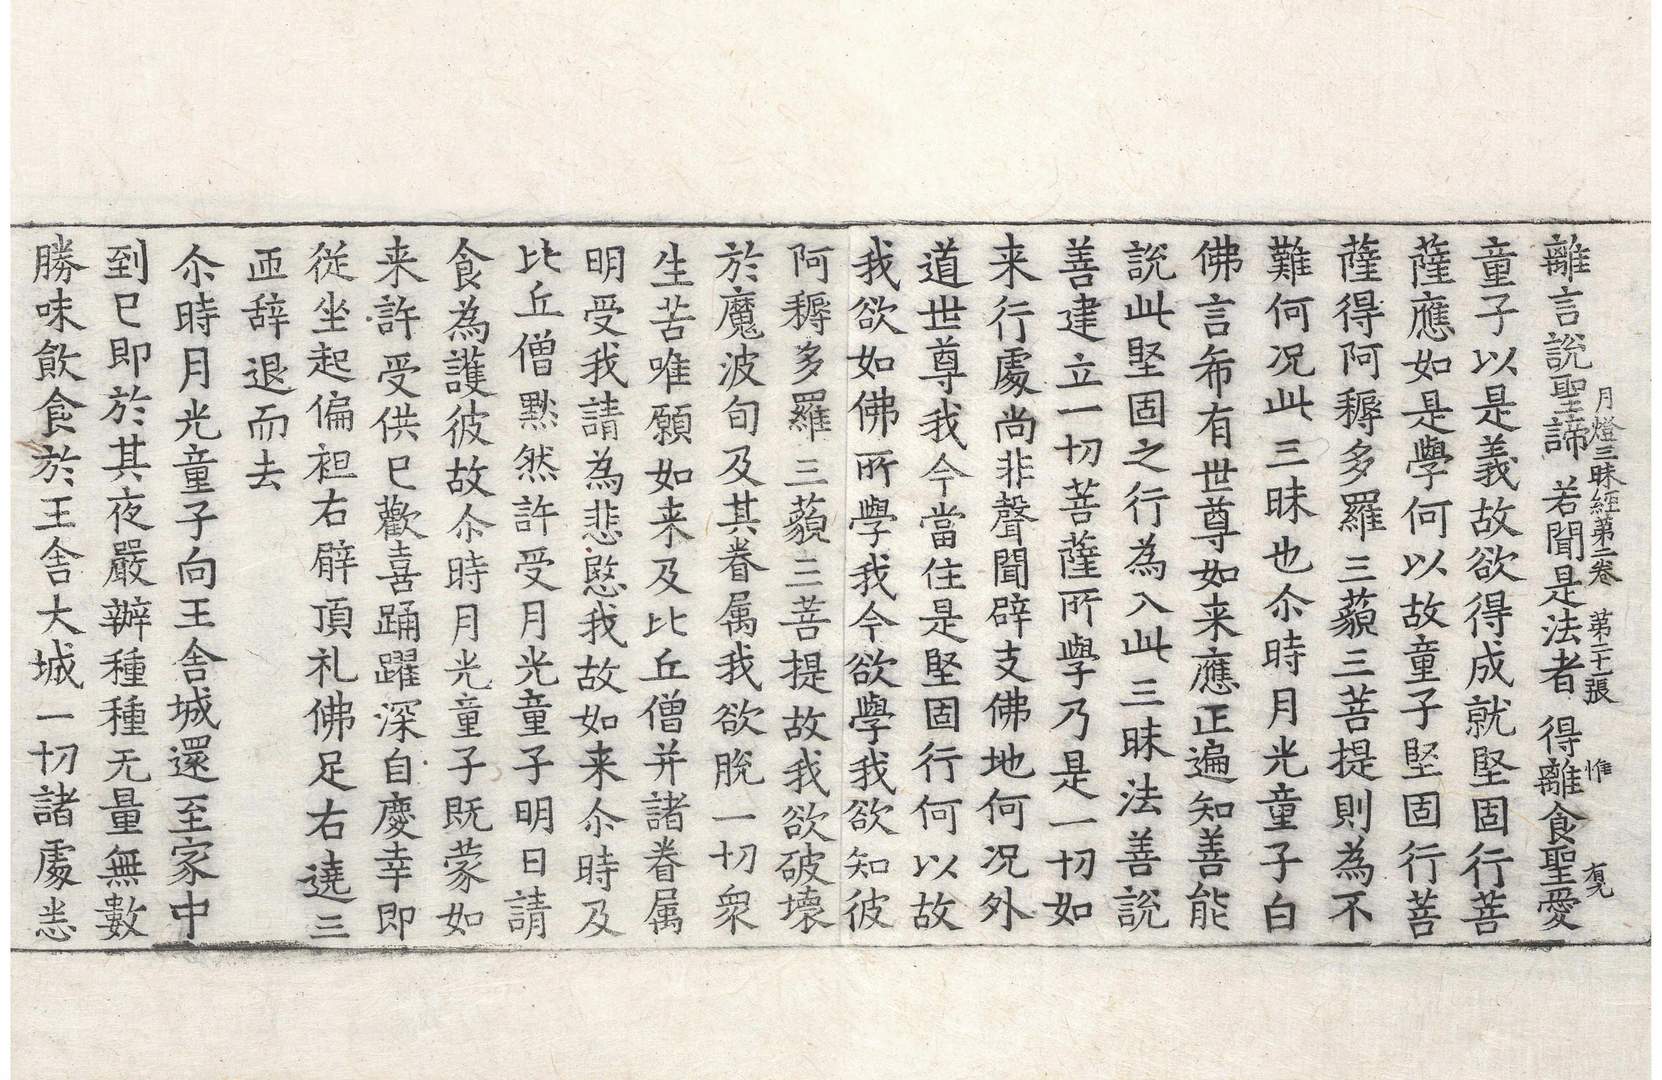 月燈三昧經第二卷 第二十張 惟
離言說聖諦 若聞是法者 得離食聖愛
童子以是義故欲得成就堅固行菩
薩應如是學何以故童子堅固行菩
薩得阿耨多羅三藐三菩提則為不
難何况此三昧也尒時月光童子白
佛言希有世尊如来應正遍知善能
說此堅固之行為入此三昧法善說
善建立一切菩薩所學乃是一切如
来行處尚非聲聞辟支佛地何况外
道世尊我今當住是堅固行何以故
我欲如佛所學我今欲學我欲知彼
阿耨多羅三藐三菩提故我欲破壞
於魔波旬及其眷属我欲脫一切衆
生苦唯願如来及比丘僧并諸眷属
明受我請為悲愍我故如来尒時及
比丘僧黙然許受月光童子明日請
食為護彼故尒時月光童子既蒙如
来許受供已歡喜踊躍深自慶幸即
従坐起偏袒右臂頂礼佛足右遶三
匝辞退而去
尒時月光童子向王舍城還至家中
到已即於其夜嚴辦種種无量無數
勝味飲食於王舍大城一切諸處悉